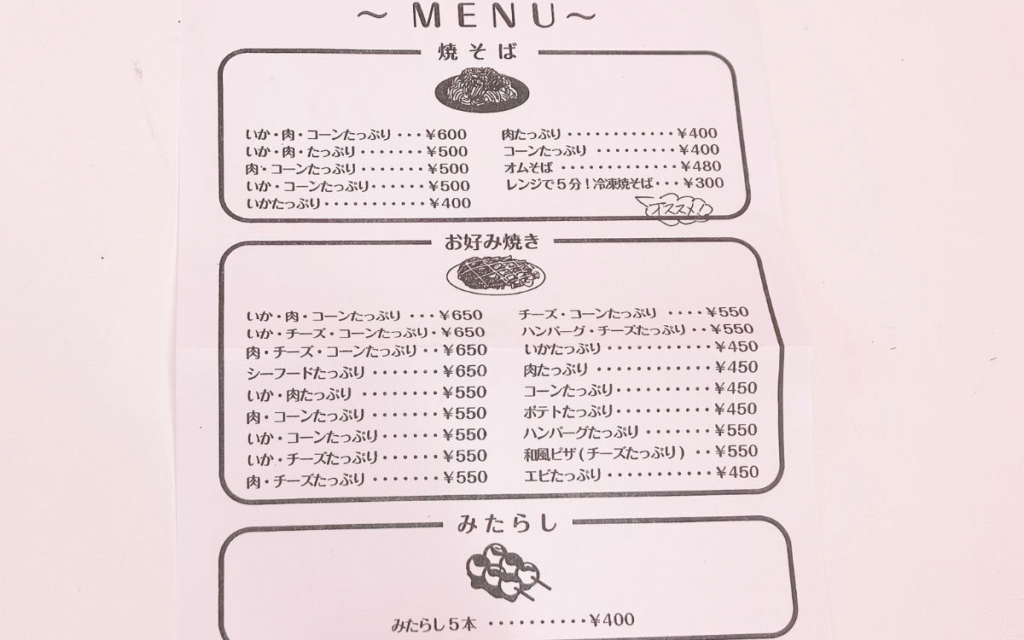 ～ MENU ～
焼そば
いか・肉・コーンたっぷり ・・・¥600
いか・肉・たっぷり ・・・・・・・¥500
肉・コーンたっぷり ・・・・・・¥500
いか・コーンたっぷり・・・・・・¥500
いかたっぷり・・・・・・・・・・・¥400
肉たっぷり ・・・・・・・・・・・・¥400
コーンたっぷり ・・・・・・・・・¥400
オムそば ・・・・・・・・・・・・・¥480
レンジで5分！冷凍焼そば・・・¥300
オススメ！
お好み焼き
いか・肉・コーンたっぷり ・・・¥650
いか・チーズ・コーンたっぷり・¥650
肉・チーズ・コーンたっぷり ・・¥650
シーフードたっぷり ・・・・・・・¥650
いか・肉たっぷり ・・・・・・・・¥550
肉・コーンたっぷり ・・・・・・・¥550
いか・コーンたっぷり・・・・・・¥550
いか・チーズたっぷり・・・・・・¥550
肉・チーズたっぷり ・・・・・・・¥550
チーズ・コーンたっぷり ・・・・¥550
ハンバーグ・チーズたっぷり ・・¥550
いかたっぷり ・・・・・・・・・・・¥450
肉たっぷり ・・・・・・・・・・・・¥450
コーンたっぷり・・・・・・・・・・¥450
ポテトたっぷり・・・・・・・・・・¥450
ハンバーグたっぷり ・・・・・・・¥550
和風ピザ(チーズたっぷり) ・・¥550
エビたっぷり ・・・・・・・・・・・¥450
みたらし
みたらし5本 ・・・・・・・・・・¥400